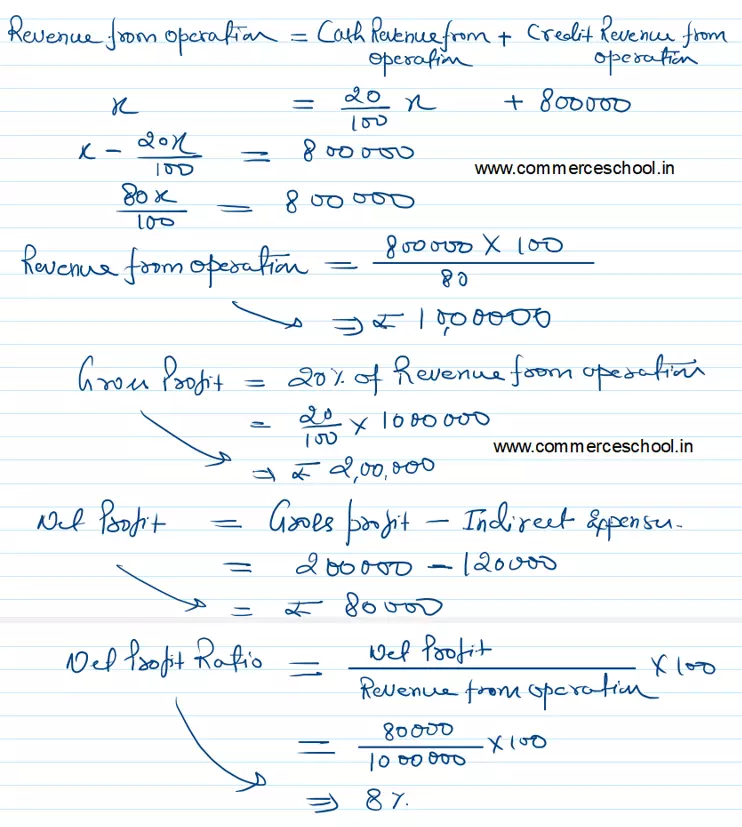 Revenue from operation = Cash Revenue from + Credit Revenue from
operation operation
x = 20/100 x + 800000
x - 20x/100 = 800000
www.commerceschool.in
80x/100 = 800000
Revenue from operation = 800000 X 100 / 80
⇒ ₹ 10,00000
Gross Profit = 20% of Revenue from operation
= 20/100 × 1000000
www.commerceschool.in
⇒ ₹ 2,00,000
Net Profit = Gross profit - Indirect Expenses.
= 200000 - 120000
= ₹ 80000
Net Profit Ratio = Net Profit / Revenue from operation × 100
= 80000/1000000 × 100
⇒ 8%.